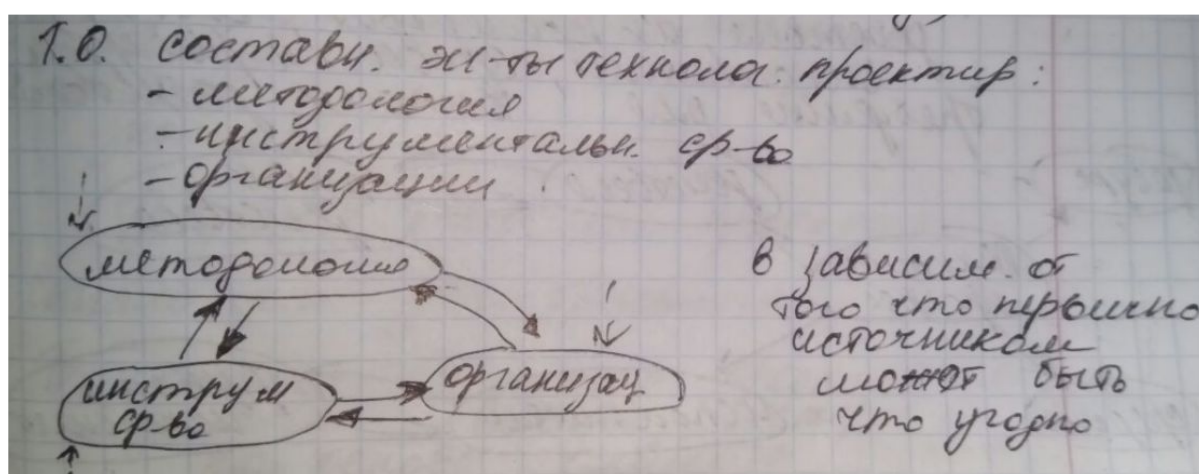 1.0. составн. эл-ты технолог. проектир:
- методология
- инструментальн. ср-во
- организации
методология
инструм
ср-во
организац
в зависим. от
того что первично
источником
может быть
что угодно